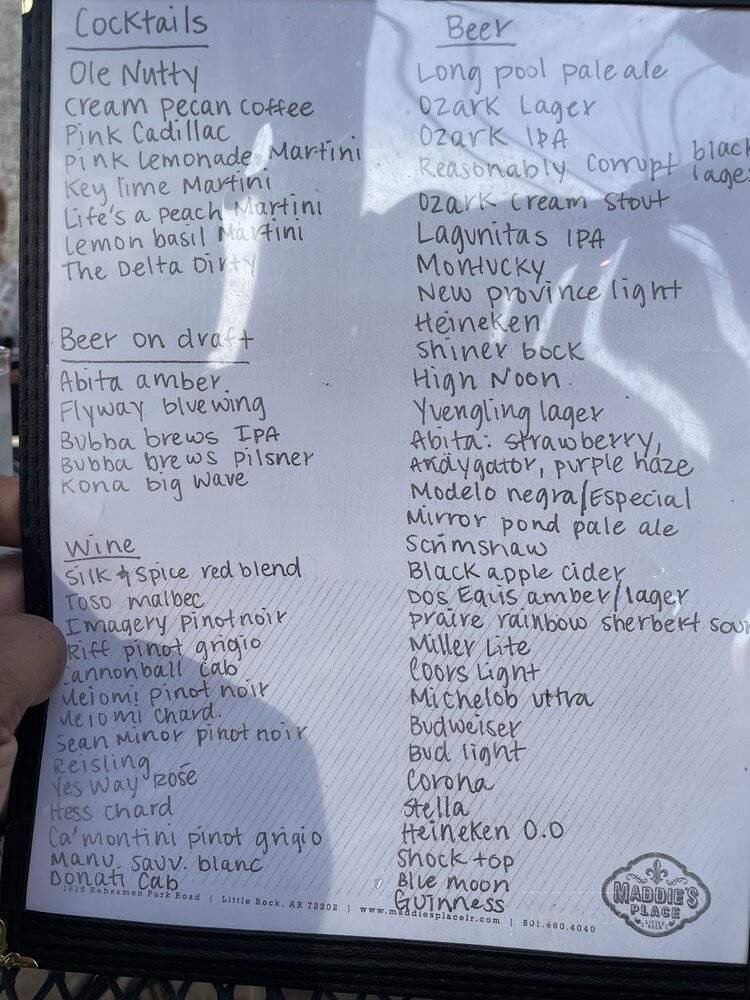 Cocktails
Ole Nutty
Cream pecan coffee
Pink Cadillac
Pink Lemonade Martini
Key lime Martini
Life's a peach Martini
Lemon basil Martini
The Delta Dirty
Beer on draft
Abita amber
Flyway bluewing
Bubba brews IPA
Bubba brews pilsner
Kona big wave
Wine
Silk & Spice red blend
Toso malbec
Imagery pinot noir
Riff pinot grigio
Cannonball cab
Meiomi pinot noir
Meiomi chard.
Sean Minor pinot noir
Reisling
Yes Way Rosé
Hess chard
Ca'montini pinot grigio
Manu. sauv. blanc
Donati Cab
Beer
Long pool pale ale
Ozark Lager
Ozark IPA
Reasonably corrupt black lager
Ozark cream stout
Lagunitas IPA
Montucky
New province light
Heineken
Shiner bock
High Noon
Yuengling lager
Abita: strawberry,
Andygator, purple haze
Modelo negra/Especial
Mirror pond pale ale
Scrimshaw
Black apple cider
Dos Equis amber/lager
Praire rainbow sherbert sour
Miller Lite
Coors Light
Michelob ultra
Budweiser
Bud light
Corona
Stella
Heineken 0.0
Shock top
Blue moon
Guinness
1615 Rebsamen Park Road | Little Rock, AR 72202 | www.maddiesplacelr.com | 501.660.4040
MADDIE'S
PLACE
LITTLE
ROCK